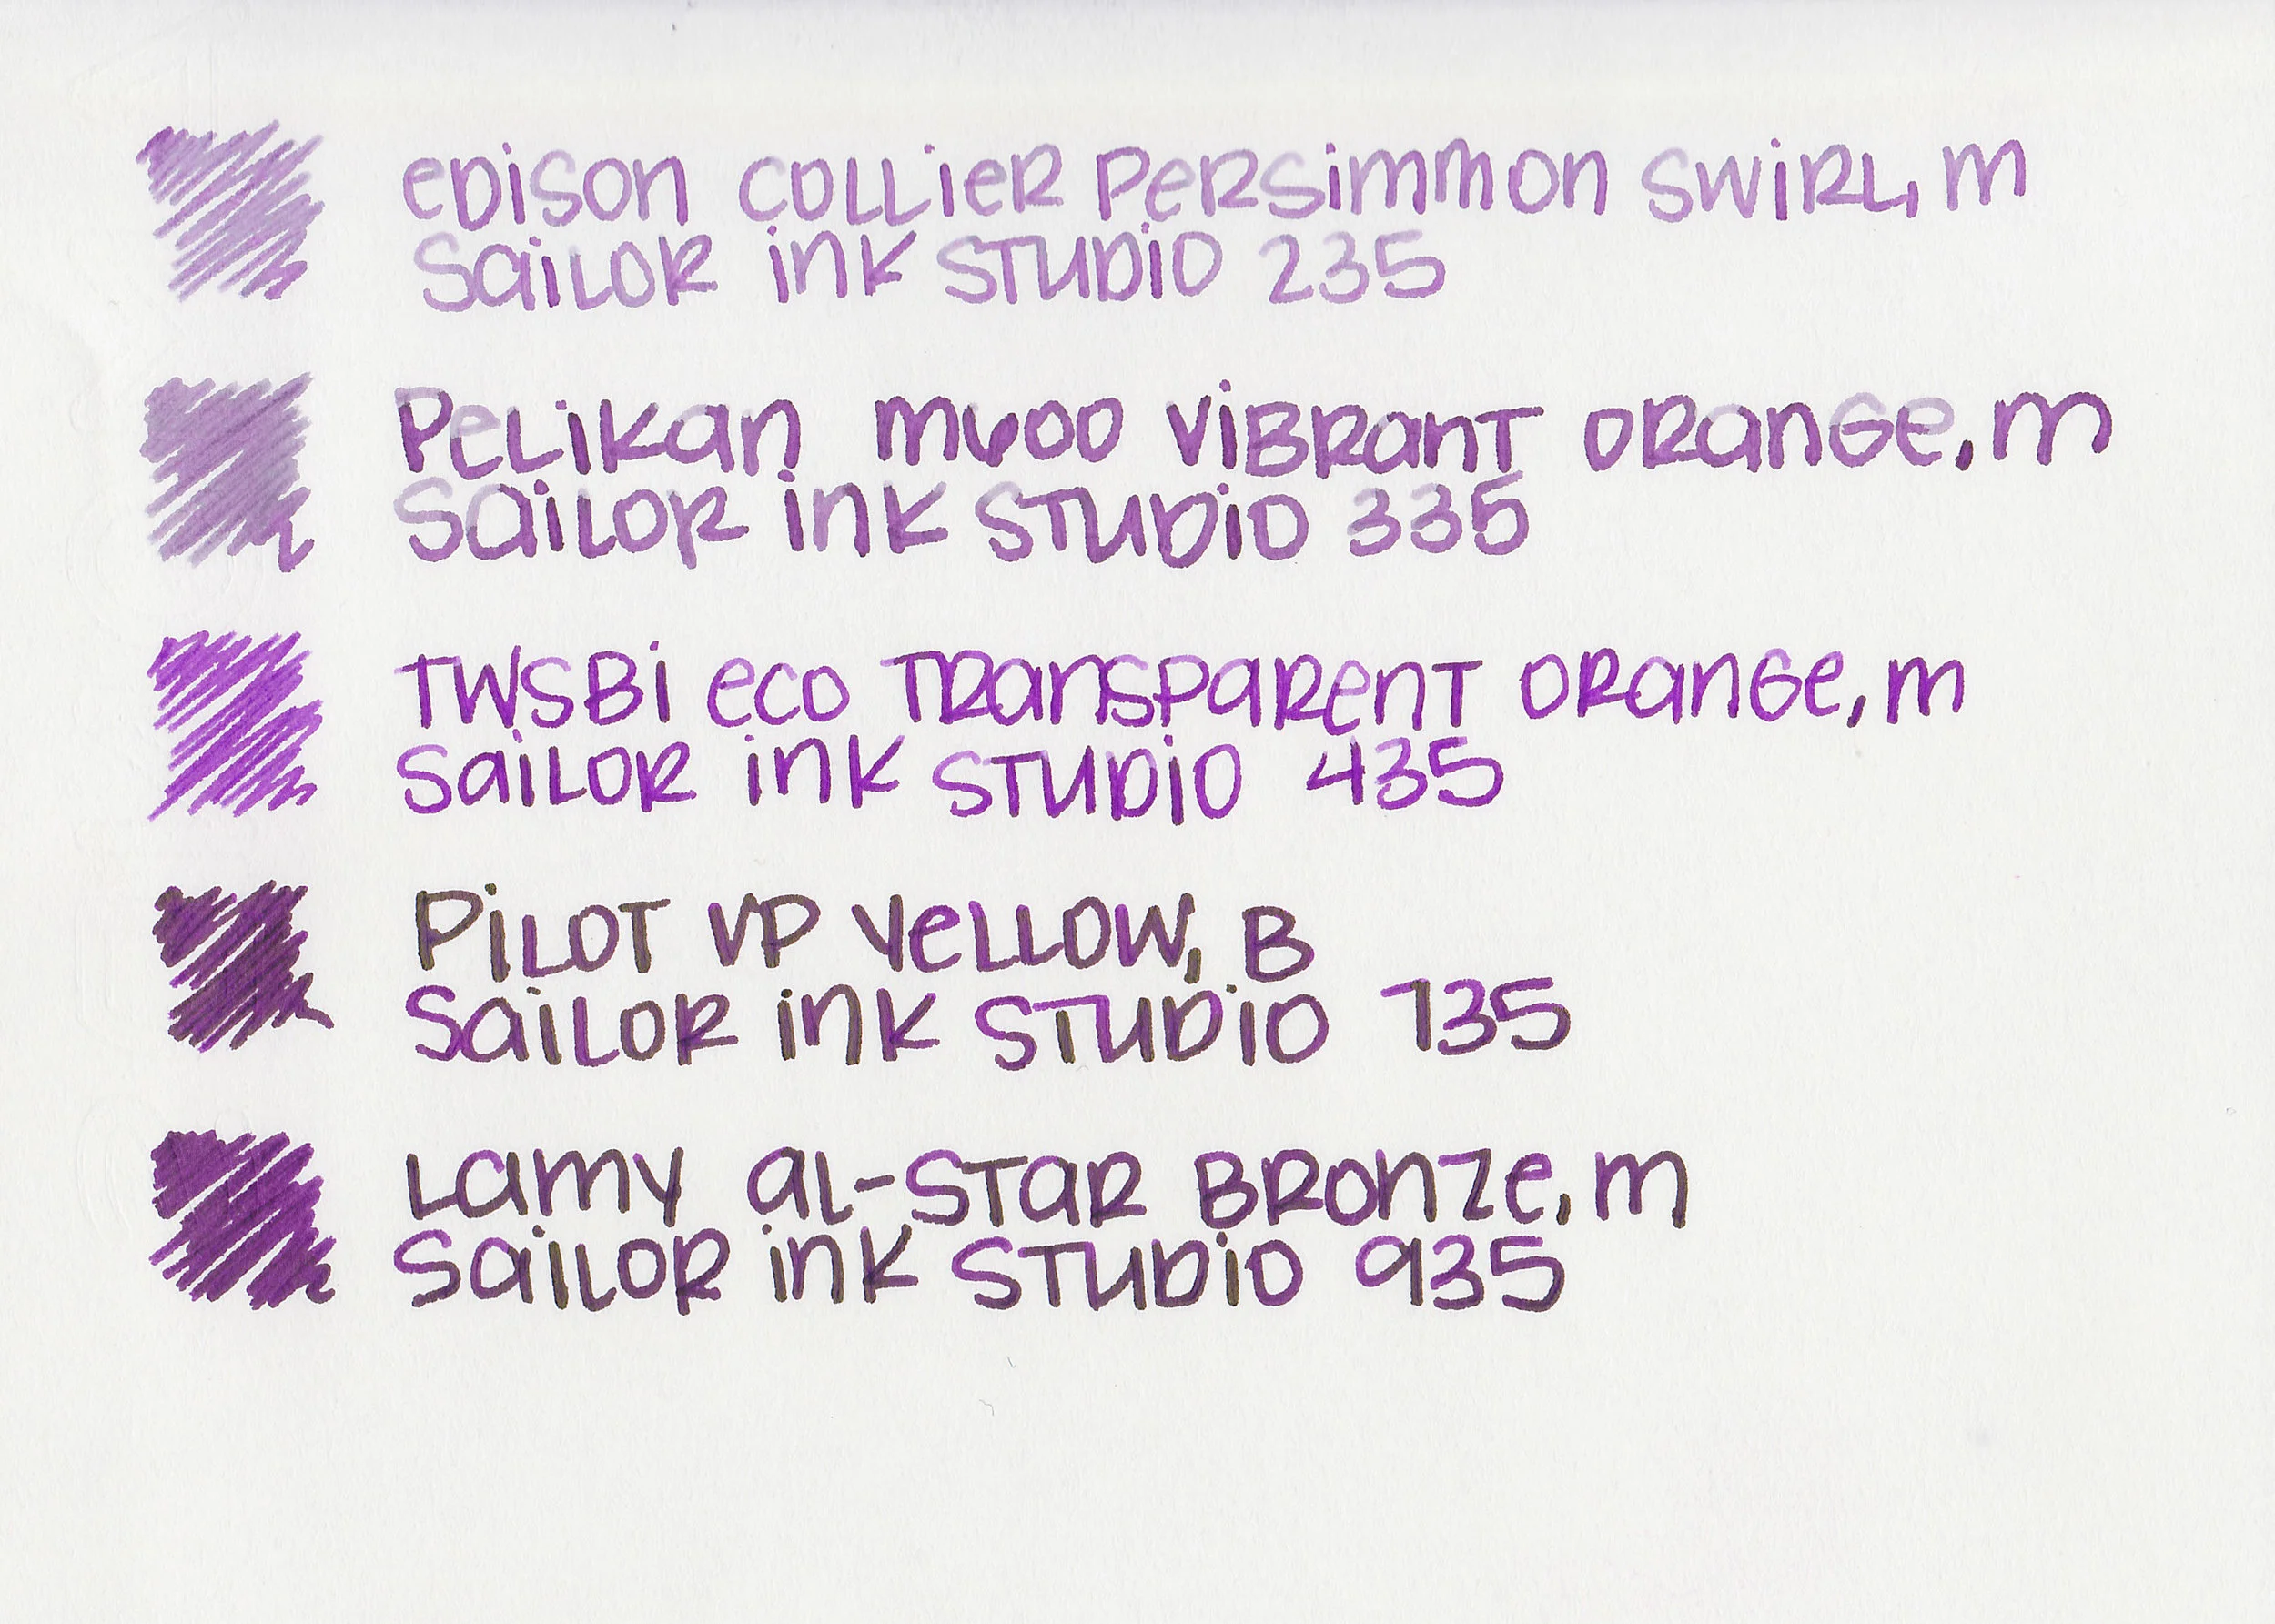 Edison Collier Persimmon Swirl, M
Sailor Ink Studio 235
Pelikan M600 Vibrant Orange, M
Sailor Ink Studio 335
TWSBI Eco Transparent Orange, M
Sailor Ink Studio 435
Pilot VP Yellow, B
Sailor Ink Studio 735
Lamy Al-Star Bronze, M
Sailor Ink Studio 935